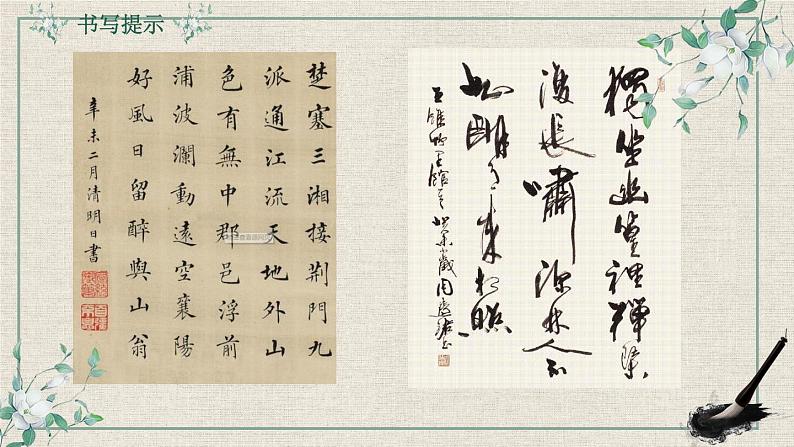 书写提示
楚塞三湘接荆門九
派通江流天地外山
色有無中郡邑浮前
浦波瀾動遠空襄陽
好風日留醉與山翁
辛未二月清明日書
獨坐幽篁裡彈琴
復長嘯深林人不
知明月來相照
王維竹里館